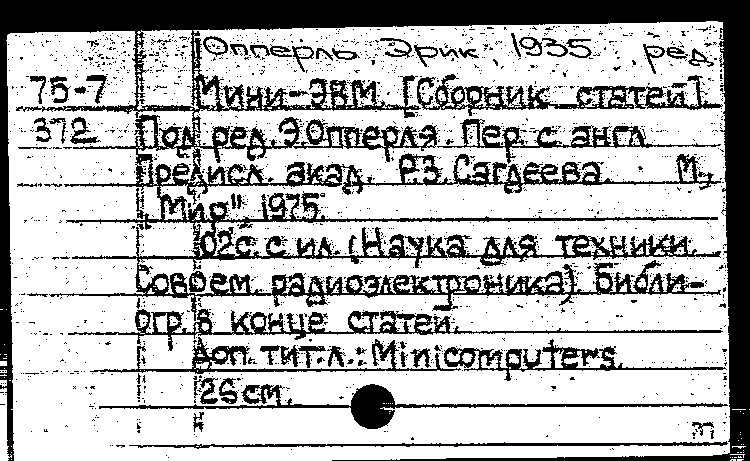 Опперль, Эрик, 1935 , ред.
75-7 Мини-ЭВМ. [Сборник статей].
372 Под ред. Э.Опперля. Пер. с англ.
Предисл. акад. Р.З.Сагдеева. М.,
"Мир", 1975.
102с. с ил. (Наука для техники.
Соврем. радиоэлектроника). Библи-
огр. в конце статей.
Доп. тит.л.: Minicomputers.
26 см.